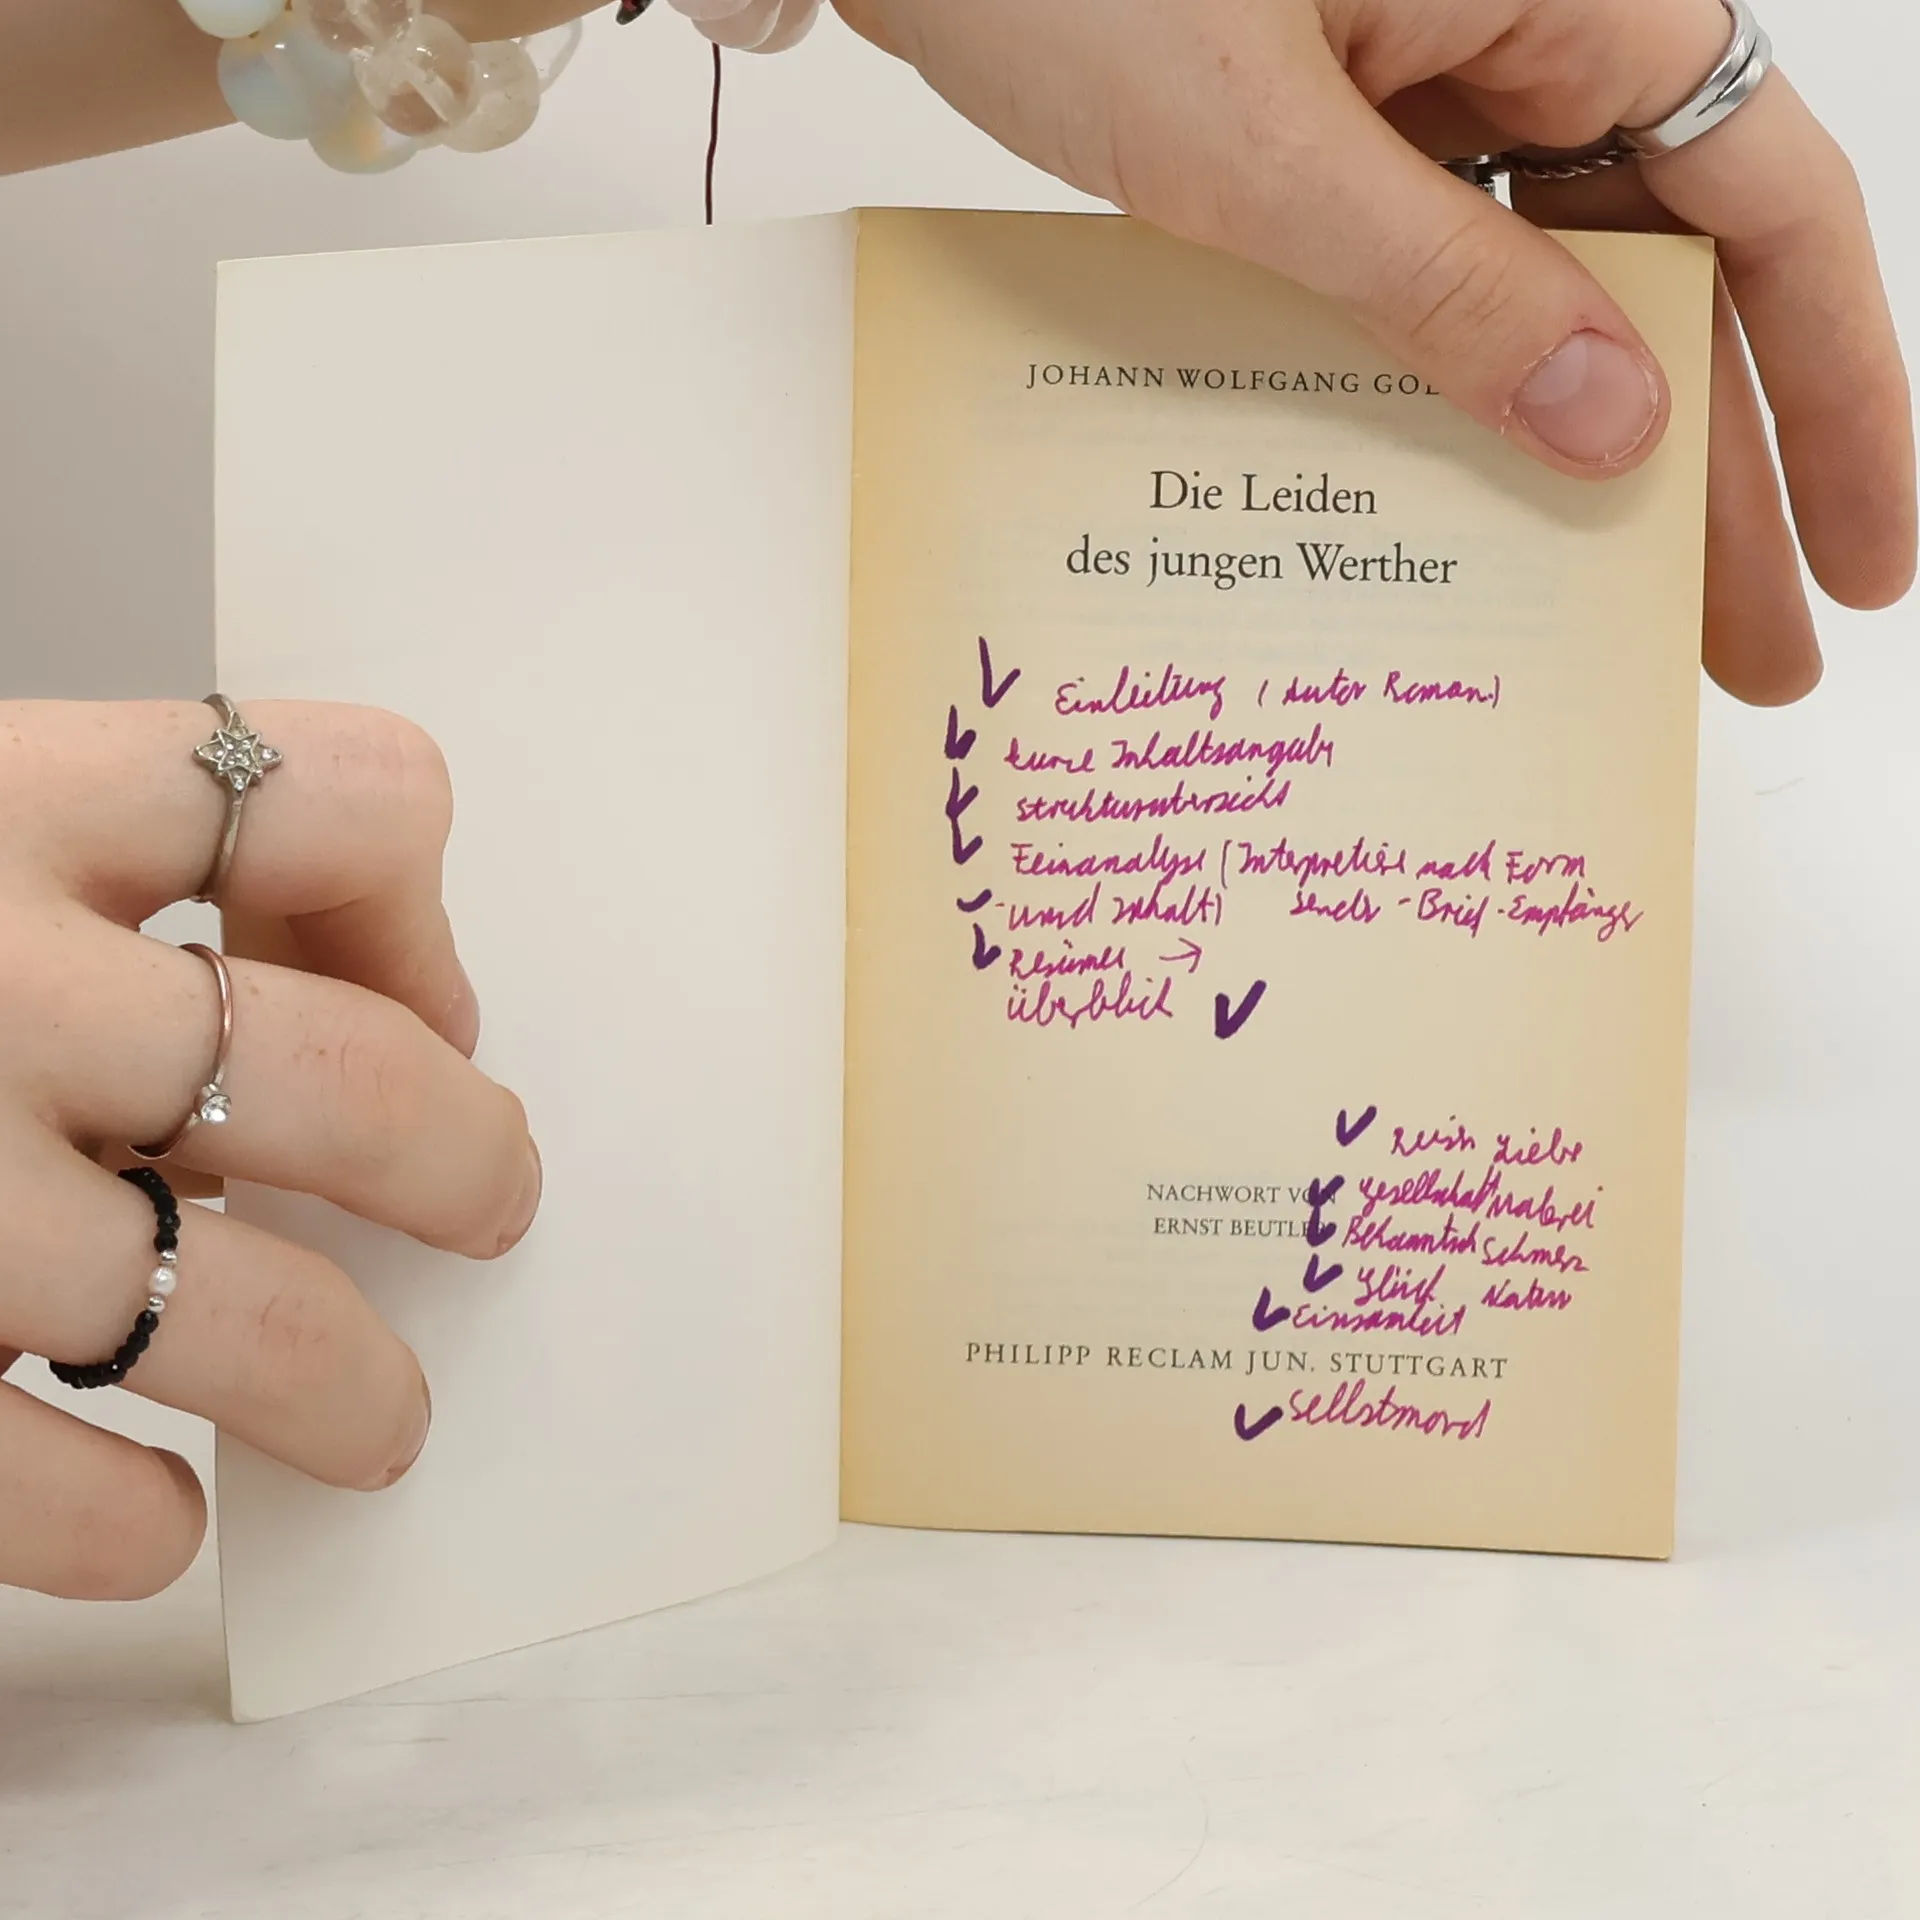 JOHANN WOLFGANG GOE
Die Leiden
des jungen Werther
Einleitung (Autor Roman)
kurze Inhaltsangabe
Strukturübersicht
Feinanalyse (Interpretiere nach Form
und Inhalt) Sender - Brief - Empfänger
Resümee →
überblick
Liebe
NACHWORT VON Gesellschaft Malerei
ERNST BEUTLER Bekanntsch Schmerz
Glück Natur
Einsamkeit
PHILIPP RECLAM JUN. STUTTGART
Selbstmord